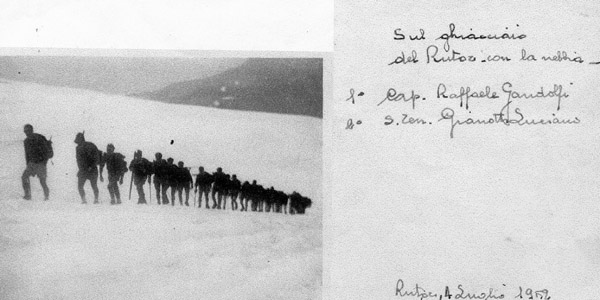 Sul ghiacciaio
del Rutor con la nebbia -
1° cap. Raffaele Gandolfi
2° s. ten. Gianotti Luciano
Rutor, Luglio 1952